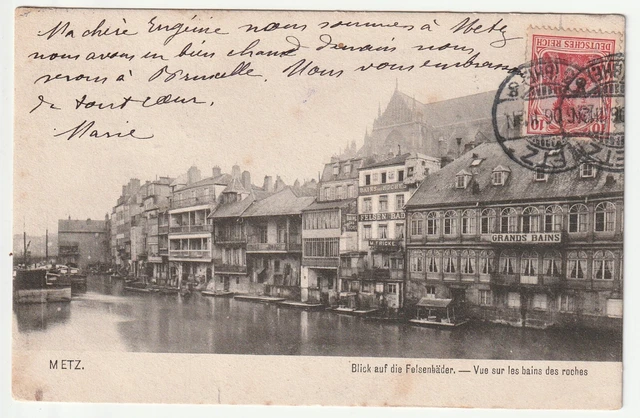 Ma chère Eugénie nous sommes à Metz
nous avons eu bien chaud demain nous
serons à Bruxelle. Nous vous embrassons
de tout cœur.
Marie
DEUTSCHES REICH
10 10
METZ
GRANDS BAINS
FELSEN BAD
METZ.
Blick auf die Felsenbäder. — Vue sur les bains des roches